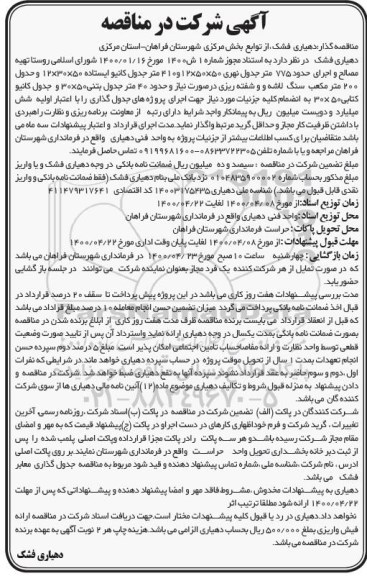 آگهی شرکت در مناقصه
مناقصه گذار:دهیاری فشک ،از توابع بخش مرکزی شهرستان فراهان-استان مرکزی
دهیاری فشک در نظر دارد به استناد مجوز شماره ۱ ش۱۴۰۰ مورخ ۱۴۰۰/۰۱/۱۶ شورای اسلامی روستا تهیه
مصالح و اجرای حدود ۷۷۵ متر جدول نهری ۵۰×۵۰×۱۲و۴۱۰ متر جدول کانیو ایستاده ۵۰×۳۰×۱۲ و حدول
۲۰۰ متر مکعب سنگ لاشه و و شفته ریزی درصورت نیاز و حدود ۴۰ متر جدول بتنی۵۰×۳۰ و جدول کانیو
کتابی۵۰×۳۰ به انضمام کلیه جزئیات مورد نیاز جهت اجرای پروژه های جدول گذاری را با اعتبار اولیه شش
میلیارد و دویست میلیون ریال به پیمانکار واجد شرایط دارای رتبه از معاونت برنامه ریزی و نظارت راهبردی
با داشتن ظرفیت کار مجاز و حداقل گرید مرتبط واگذار نماید.مدت اجرای قرارداد و اعتبار پیشنهادات سه ماه می
باشد متقاضیان برای کسب اطلاعات بیشتر از جزئیات پروژه به واحد فنی دهیاری واقع در فرمانداری شهرستان
فراهان مراجعه و یا با شماره تلفن ۰۸۶۳۳۷۲۳۰۵-۰۹۱۹۹۶۸۱۶۰۰ تماس حاصل فرمایند.
مبلغ تضمین شرکت در مناقصه : سیصد و ده میلیون ریال ضمانت نامه بانکی در وجه دهیاری فشک و یا واریز
مبلغ مذکور بحساب شماره ۰۱۰۴۸۳۵۹۰۰۰۰۲ نزد بانک ملی بنام دهیاری فشک (فقط ضمانت نامه بانکی و واریز
نقدی قابل قبول می باشد.) شناسه ملی دهیاری ۱۴۰۰۳۱۷۵۴۳۵ کد اقتصادی ۴۱۱۴۷۹۳۱۷۶۴۱
زمان توزیع اسناد:از مورخ ۱۴۰۰/۰۴/۰۸ لغایت ۱۴۰۰/۰۴/۲۲
محل توزیع اسناد:واحد فنی دهیاری واقع در فرمانداری شهرستان فراهان
محل تحویل پاکات : حراست فرمانداری شهرستان فراهان
مهلت قبول پیشنهادات :از مورخ ۱۴۰۰/۰۴/۰۸ لغایت پایان وقت اداری مورخ ۱۴۰۰/۰۴/۲۲
زمان بازگشایی : چهارشنبه ساعت ۱۰صبح مورخ ۱۴۰۰/۰۴/۲۳ در فرمانداری شهرستان فراهان می باشد
که در صورت تمایل از هر شرکت کننده یک فرد مجاز بعنوان نماینده شرکت می توانند در جلسه باز گشایی
حضور یابد.
مدت بررسی پیشنهادات هفت روز کاری می باشد در این پروژه پیش پرداخت تا سقف ۲۰ درصد قرارداد در
قبال اخذ ضمانت نامه بانکی پرداخت می گردد میزان تضمین حسن انجام معامله ۱۰ درصد مبلغ قراداد می باشد
که قبل از انعقاد قرارداد می بایست برنده مناقصه ظرف مدت هفت روز کاری از ابلاغ برنده شدن در مناقصه
بصورت ضمانت نامه بانکی بمدت یکسال در وجه دهیاری ارائه نماید واسترداد آن پس از تایید صورت وضعیت
قطعی توسط واحد نظارت و ارائه مفاصاحساب تأمین اجتماعی امکان پذیر است مبلغ ۵ درصد دوم سپرده حسن
انجام تعهدات بمدت ۱ سال از تحویل موقت پروژه در حساب سپرده دهیاری خواهد ماند. در شرایطی که نفرات
اول ،دوم و سوم حاضر به عقد قرارداد نشوند سپرده آنها به نفع دهیاری ضبط خواهد شد. شرکت در مناقصه و
دادن پیشنهاد به منزله قبول شروط و تکالیف دهیاری موضوع ماده(۱۲)آئین نامه مالی دهیاری ها از سوی شرکت
کننده گان می باشد.
شرکت کنندگان در پاکت (الف) تضمین شرکت در مناقصه در پاکت (ب)اسناد شرکت ،روزنامه رسمی، آخرین
تغییرات ، گرید شرکت و فرم خوداظهاری کارهای در دست اجراو در پاکت (ج)پیشنهاد قیمت که به مهر و امضای
مقام مجاز شرکت رسیده باشدو هر سه پاکت رادر پاکت مجزا قرارداده وپاکت اصلی پلمپ شده را پس
از ثبت دبیر خانه بخشداری تحویل واحد حراست واقع در فرمانداری شهرستان نمایند.بر روی پاکت اصلی
ادرس ، نام شرکت ،شناسه ملی ،شماره تماس پیشنهاد دهنده و قید شود مربوط به مناقصه جدول گذاری معابر
فشک می باشد.
دهیاری به پیشنهادات مخدوش ،مشروط فاقد مهر و امضا پیشنهاد دهنده و پیشنهاداتی که پس از مهلت
۱۴۰۰/۰۴/۲۲ ارائه شود مطلقا ترتیب اثر
نخواهد داد.دهیاری در رد یا قبول کلیه پیشنهدات مختار است.جهت دریافت اسناد شرکت در مناقصه ارائه
فیش واریزی بمبلغ ۵۰۰/۰۰۰ ریال بحساب دهیاری الزامی می باشد.هزینه چاپ هر ۲ نوبت آگهی به عهده برنده
شرکت در مناقصه می باشد.
دهیاری فشک